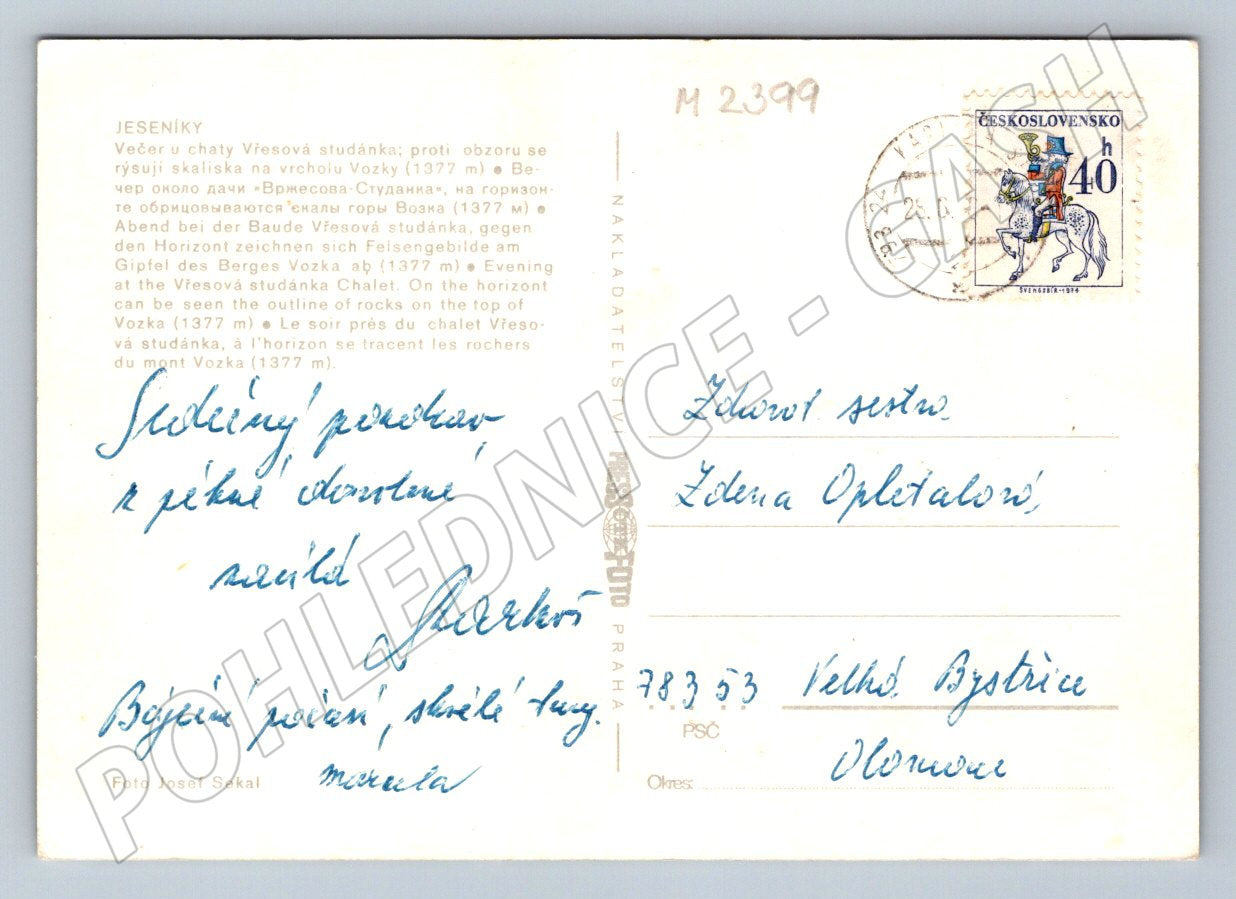 M 2399
JESENÍKY
Večer u chaty Vřesová studánka; proti obzoru se
rýsují skaliska na vrcholu Vozky (1377 m) ● Ве-
чер около дачи «Вржесова-Студанка», на горизон-
те обрицовываются скалы горы Возка (1377 м) ●
Abend bei der Baude Vřesová studánka, gegen
den Horizont zeichnen sich Felsengebilde am
Gipfel des Berges Vozka ab (1377 m) ● Evening
at the Vřesová studánka Chalet. On the horizont
can be seen the outline of rocks on the top of
Vozka (1377 m) ● Le soir près du chalet Vřeso-
vá studánka, à l'horizon se tracent les rochers
du mont Vozka (1377 m).
Srdečný pozdrav
z pěkné dovolené
zasílá
Báječné počasí, skvělé túry.
Foto Josef Sekal
NAKLADATELSTVÍ PRESSFOTO PRAHA
ČESKOSLOVENSKO
40 h
ŠVENGSBÍR-1974
Zdravot sestra
Zdena Opletalová,
783 53 Velká Bystřice
PSČ
Olomouc
Okres:
POHLEDNICE - GASH